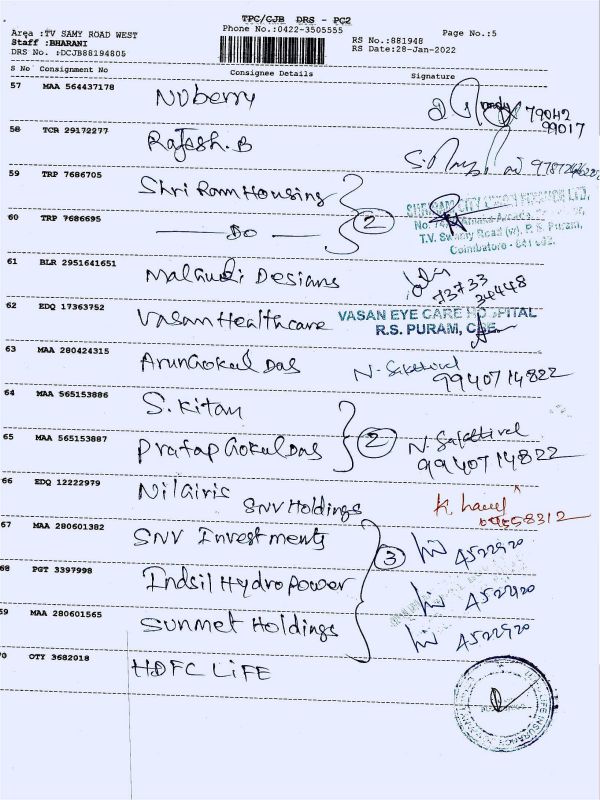 TPC/CJB DRS - PC2
Phone No.:0422-3505555
Page No.:5
Area :TV SAMY ROAD WEST
Staff :BHARANI
DRS No. :DCJB88194805
RS No.:881948
RS Date:28-Jan-2022
S No Consignment No Consignee Details Signature
57 MAA 564437178 Nuberry 79042
99017
58 TCR 29172277 Rajesh.B
59 TRP 7686705 Shri Ram Housing
60 TRP 7686695 Do 2
T.V. Samy Road (w), R. S. Puram,
Coimbatore - 641 002.
61 BLR 2951641651 Malgudi Designs 73733
34448
62 EDQ 17363752 Vasan Healthcare VASAN EYE CARE HOSPITAL
R.S. PURAM, CBE.
63 MAA 280424315 Arun Gokul Das N. Sakthivel
9940714822
64 MAA 565153886 S. Kitan
65 MAA 565153887 Pratap Gokul Das 2 N. Sakthivel
9940714822
66 EDQ 12222979 Nilgiris SNV Holdings
67 MAA 280601382 SNV Investments 3 4522920
68 PGT 3397998 Indsil Hydro Power 4522920
69 MAA 280601565 Sunmet Holdings 4522920
70 OTY 3682018 HDFC LiFE